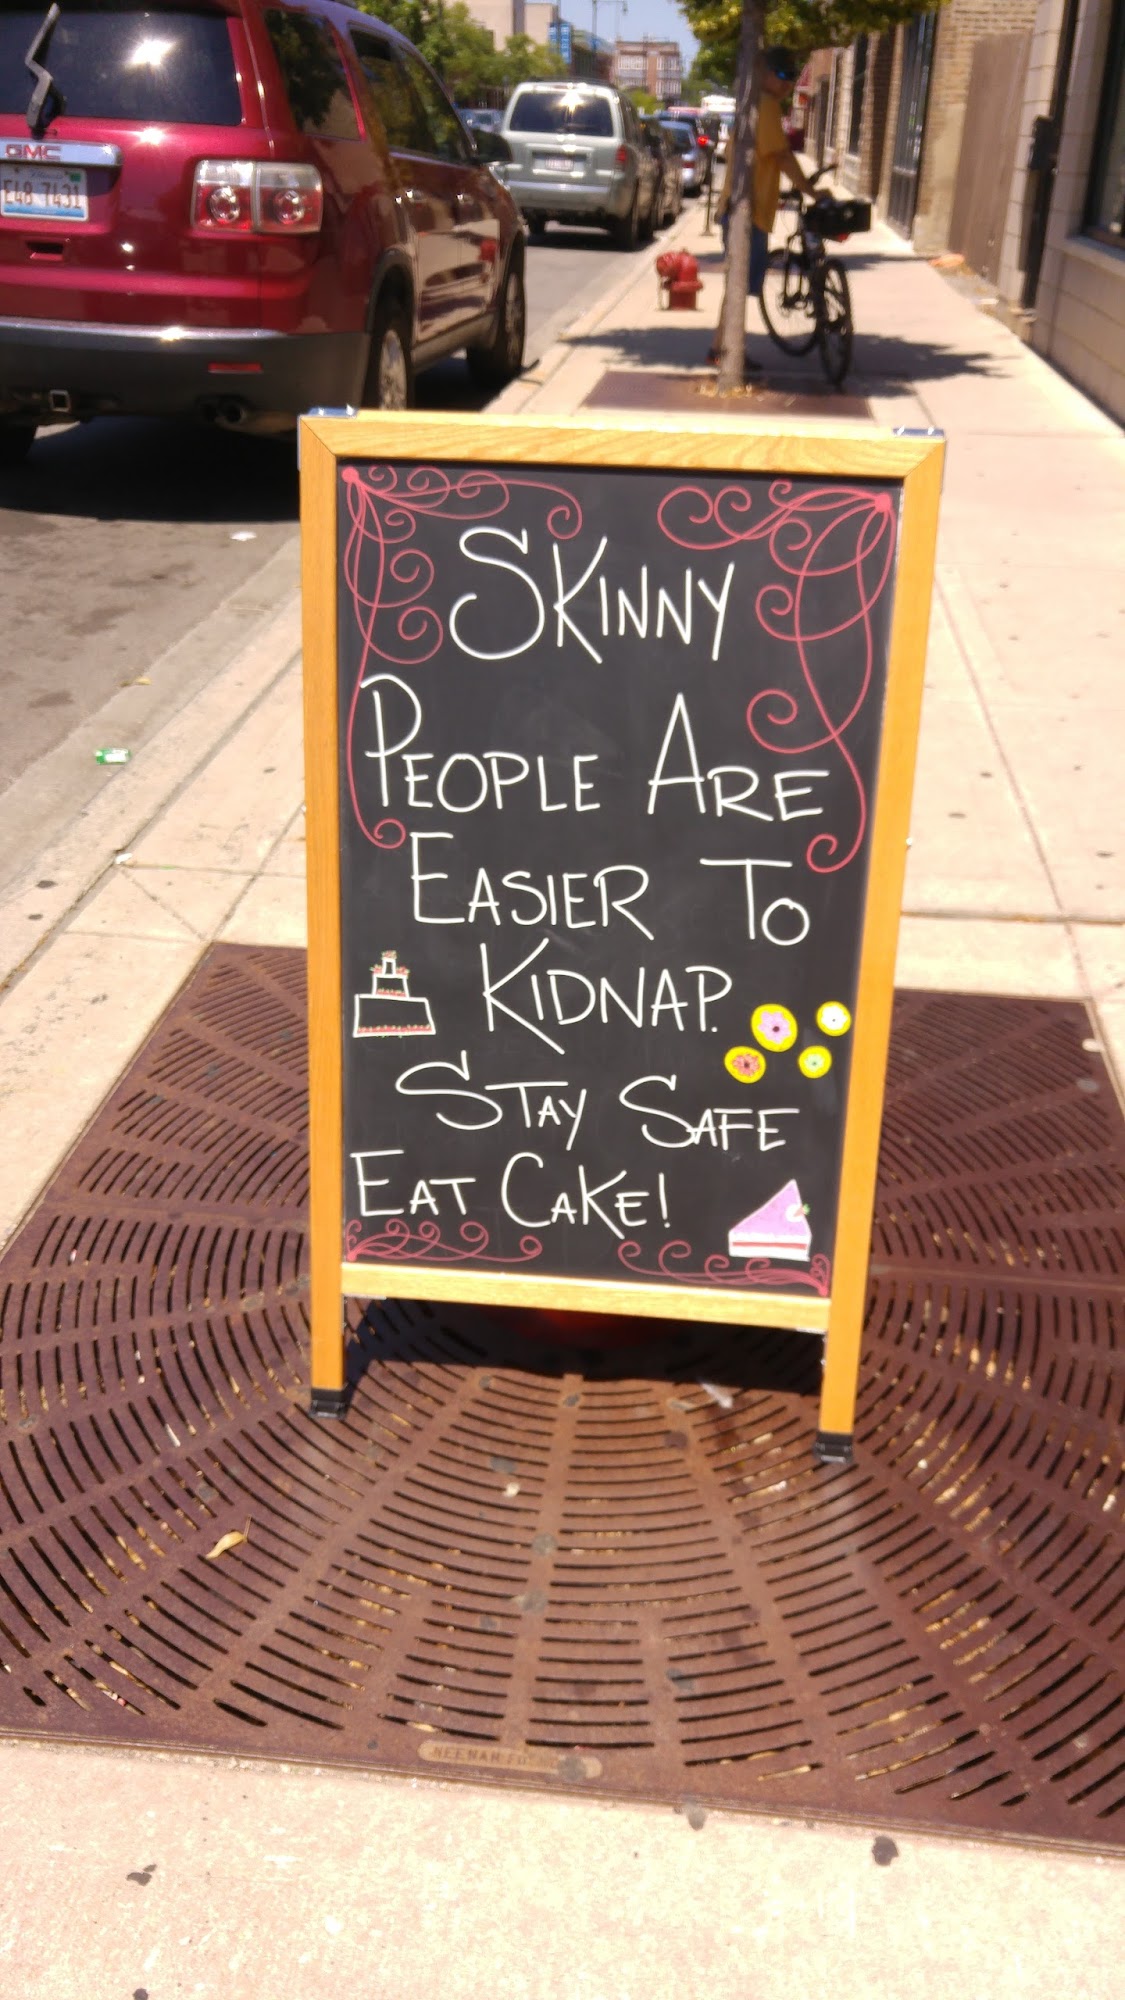 GMC
E48 7431
SKINNY
PEOPLE ARE
EASIER TO
KIDNAP.
STAY SAFE
EAT CAKE!
NEENAH